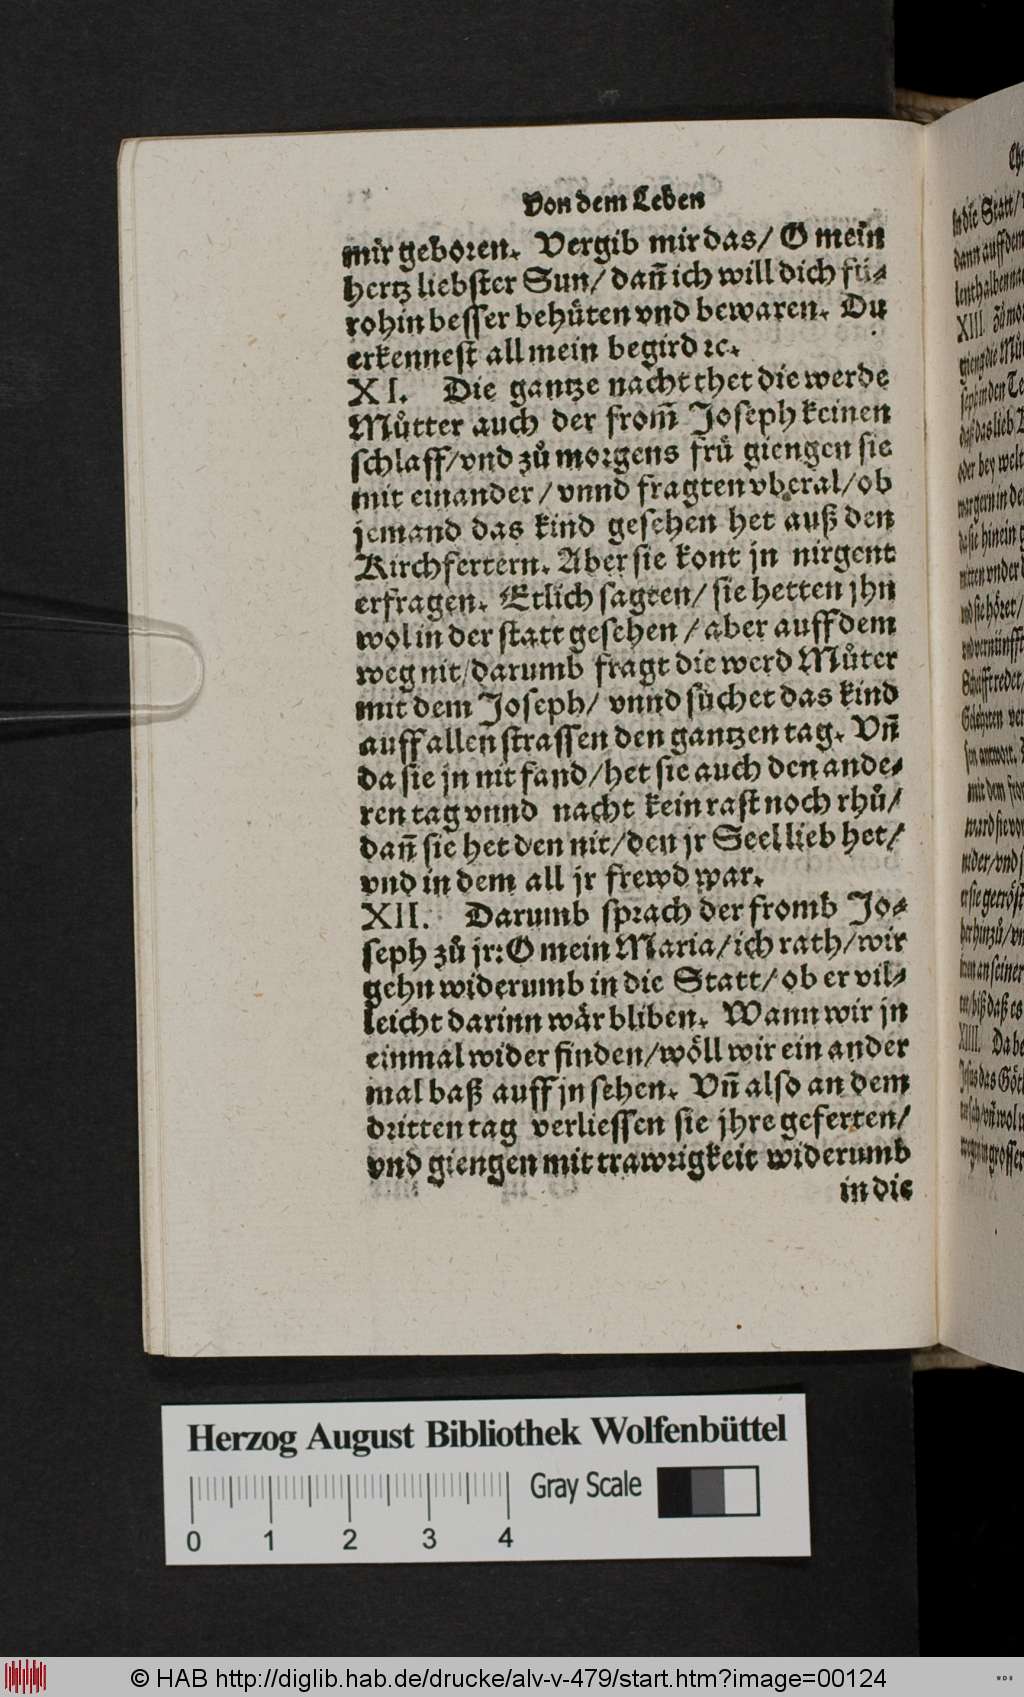 Von dem Leben
mir geboren. Vergib mir das/ O mein
hertz liebster Sun/ dañ ich will dich fü-
rohin besser behüten vnd bewaren. Du
erkennest all mein begird ꝛc.
XI. Die gantze nacht thet die werde
Můtter auch der from̃ Joseph keinen
schlaff/vnd zů morgens frü giengen sie
mit einander/ vnnd fragten vberal/ob
jemand das kind gesehen het auß den
Kirchfertern. Aber sie kont jn nirgent
erfragen. Etlich sagten/ sie hetten jhn
wol in der statt gesehen/ aber auff dem
weg nit/darumb fragt die werd Můter
mit dem Joseph/ vnnd sůchet das kind
auff allen strassen den gantzen tag. Vñ
da sie jn nit fand/het sie auch den ande-
ren tag vnnd nacht kein rast noch rhů/
dañ sie het den nit/den jr Seel lieb het/
vnd in dem all jr frewd war.
XII. Darumb sprach der fromb Jo-
seph zů jr: O mein Maria/ich rath/wir
gehn widerumb in die Statt/ ob er vil-
leicht darinn wär bliben. Wann wir jn
einmal wider finden/wöll wir ein ander
mal baß auff jn sehen. Vñ also an dem
dritten tag verliessen sie jhre geferten/
vnd giengen mit trawrigkeit widerumb
in die
in die Statt/
dann auff dem
XIII.
XIIII. Da be
Herzog August Bibliothek Wolfenbüttel
Gray Scale
0 1 2 3 4
© HAB http://diglib.hab.de/drucke/alv-v-479/start.htm?image=00124